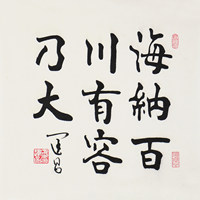 海納百
川有容
乃大